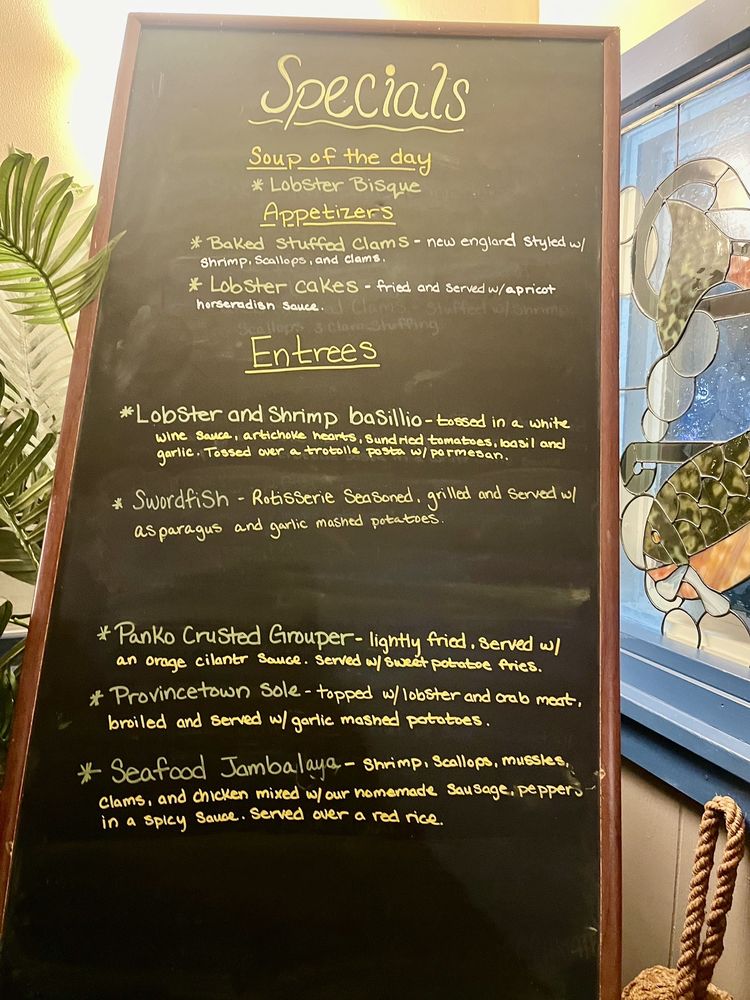 Specials
Soup of the day
* Lobster Bisque
Appetizers
* Baked Stuffed Clams - new england styled w/
shrimp, scallops, and clams.
* Lobster cakes - fried and served w/apricot
horseradish sauce.
Entrees
* Lobster and Shrimp basillio - tossed in a white
wine sauce, artichoke hearts, sundried tomatoes, basil and
garlic. Tossed over a trotolle pasta w/ parmesan.
* Swordfish - Rotisserie Seasoned, grilled and served w/
asparagus and garlic mashed potatoes.
* Panko Crusted Grouper - lightly fried, served w/
an orage cilantr sauce. Served w/ sweet potatoe fries.
* Provincetown Sole - topped w/ lobster and crab meat,
broiled and served w/ garlic mashed potatoes.
* Seafood Jambalaya - Shrimp, Scallops, mussles,
clams, and chicken mixed w/ our homemade sausage, peppers
in a spicy sauce. Served over a red rice.